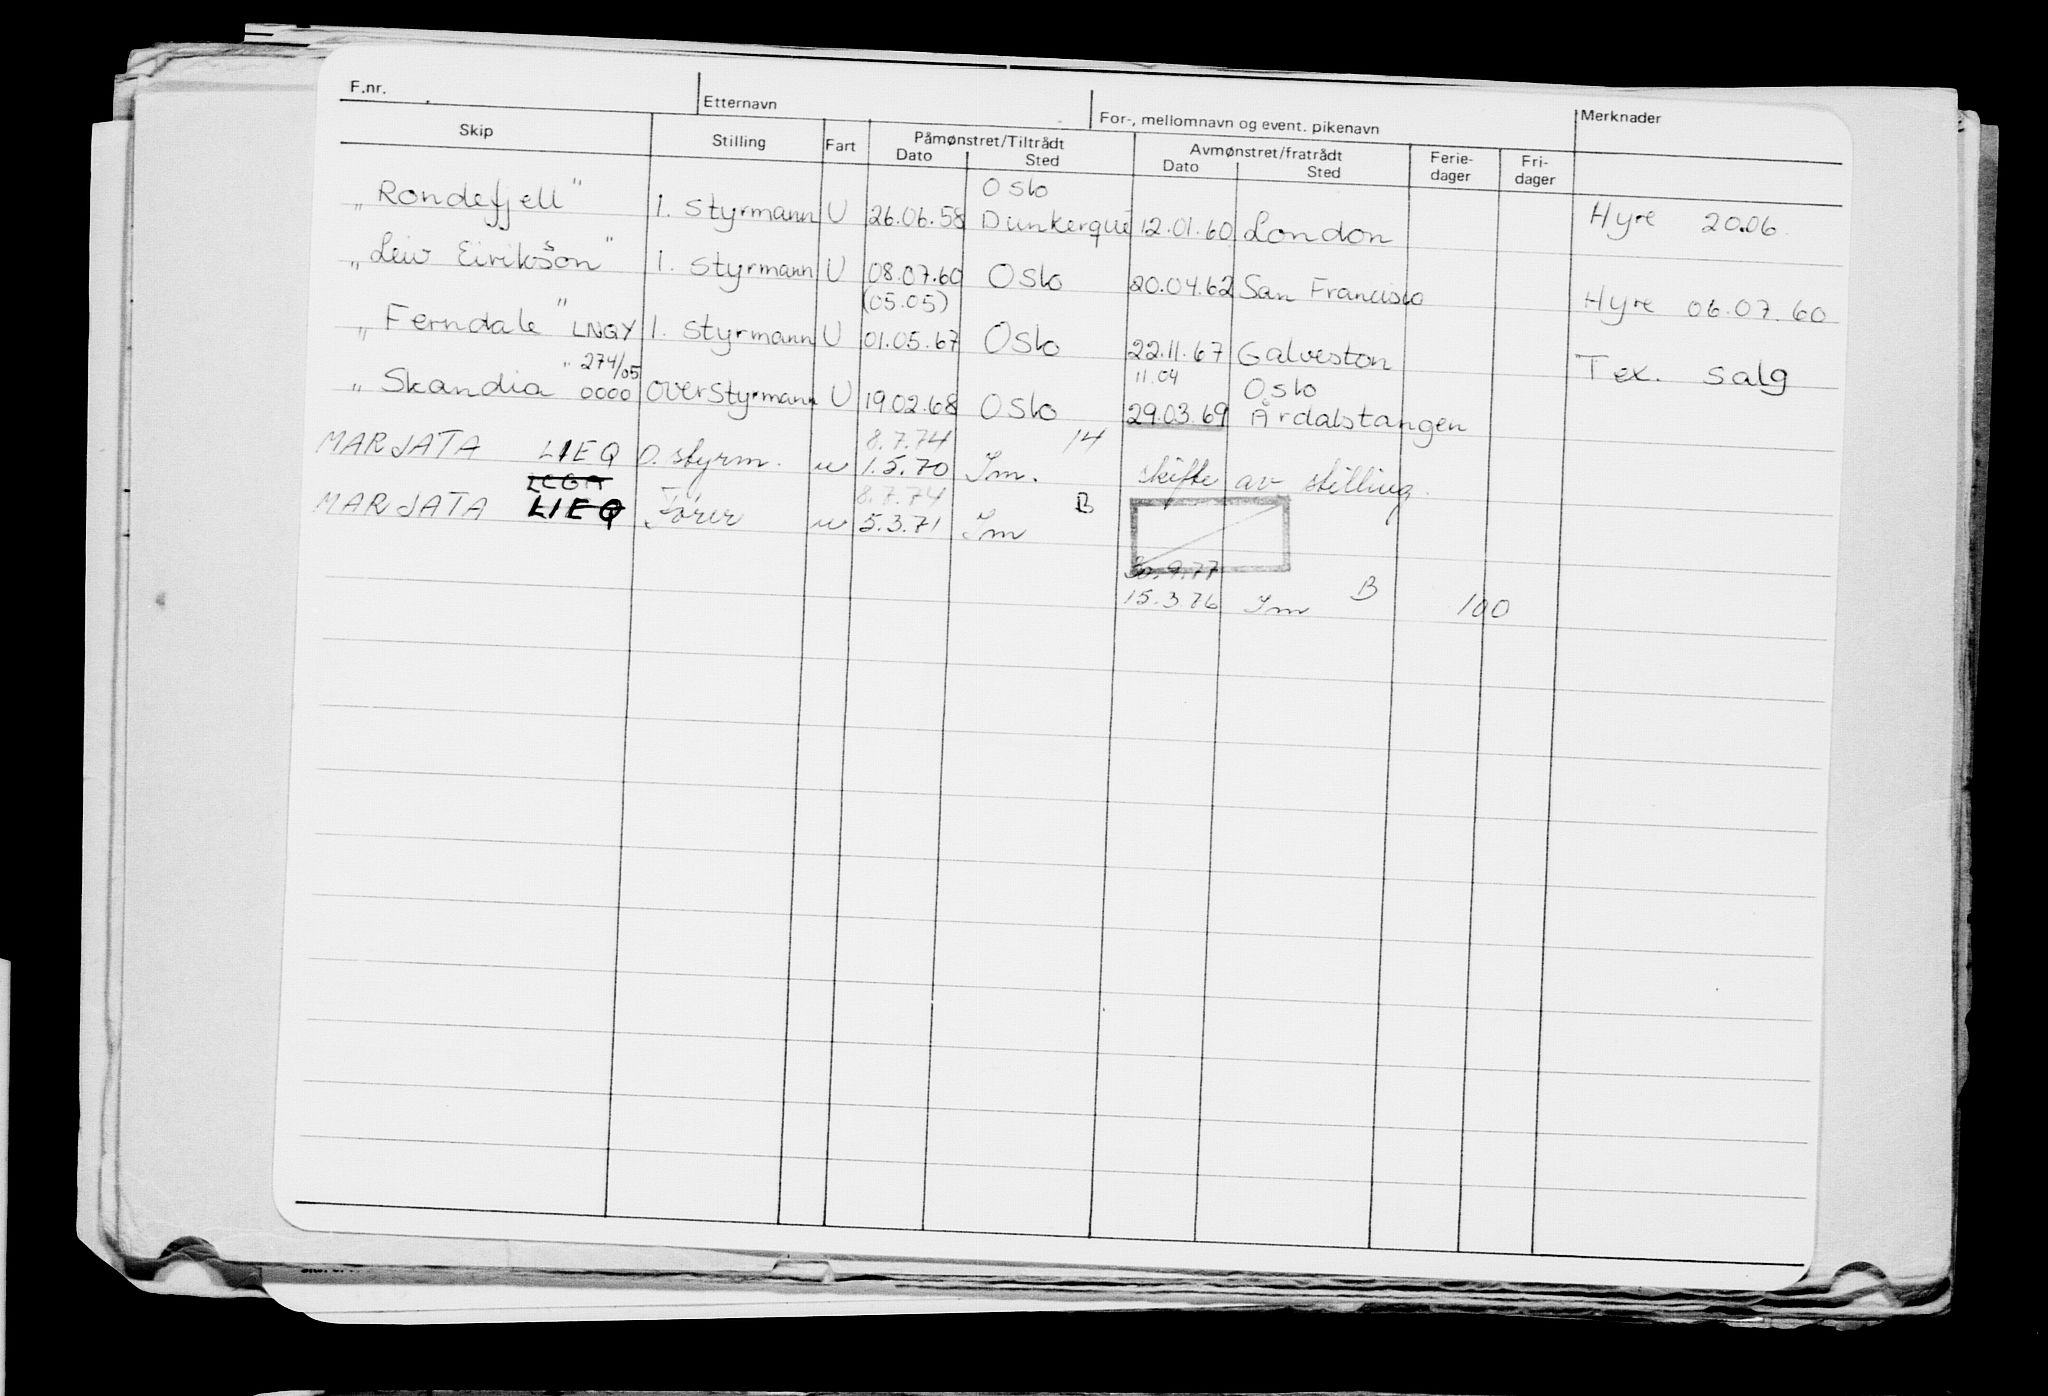 F.nr. Etternavn For-, mellomnavn og event. pikenavn Merknader
Skip Stilling Fart Påmønstret/Tiltrådt Avmønstret/fratrådt Ferie- Fri-
Dato Sted Dato Sted dager dager
Oslo
„Rondefjell" 1. Styrmann U 26.06.58 Dunkerque 12.01.60 London Hyre 20.06.
„Leiv Eirikson" 1. Styrmann U 08.07.60 Oslo 20.04.62 San Francisco Hyre 06.07.60
(05.05)
„Ferndale" LNQY 1. Styrmann U 01.05.67 Oslo 22.11.67 Galveston Tex. Salg
" 274/05 11.04 Oslo
„Skandia 0000 Overstyrmann U 19.02.68 Oslo 29.03.69 Årdalstangen
8.7.74 14
MARJATA LIEQ O. styrm. u 1.5.70 Im. skifte av stilling.
8.7.74 B
MARJATA LIEQ Fører u 5.3.71 Im
30.9.77
15.3.76 Im B 100